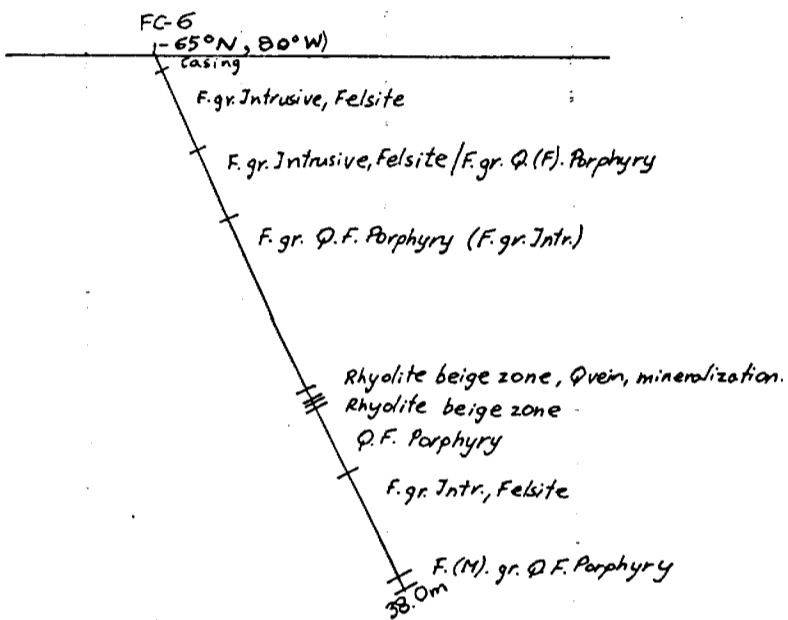 FC-6
(-65°N, 80°W)
Casing
F.gr. Intrusive, Felsite
F.gr. Intrusive, Felsite/F.gr. Q.(F). Porphyry
F.gr. Q.F. Porphyry (F.gr. Intr.)
Rhyolite beige zone, Qvein, mineralization.
Rhyolite beige zone
Q.F. Porphyry
F.gr. Intr., Felsite
F.(M). gr. Q.F. Porphyry
38.0m